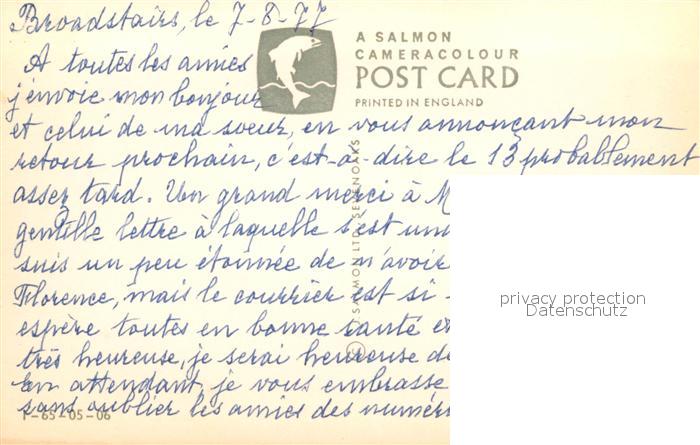 Broadstairs, le 7-8-77
A SALMON
CAMERACOLOUR
POST CARD
PRINTED IN ENGLAND
A toutes les amies
j'envoie mon bonjour
et celui de ma soeur, en vous annonçant mon
retour prochain, c'est-à-dire le 13 probablement
assez tard. Un grand merci à M
gentille lettre à laquelle s'est un
suis un peu étonnée de n'avoir
Florence, mais le courrier est si
espère toutes en bonne santé e
très heureuse, je serai heureuse de
En attendant, je vous embrasse
sans oublier les amies des numér
1-65-05-06
SALMON LTD. SEVENOAKS
privacy protection
Datenschutz